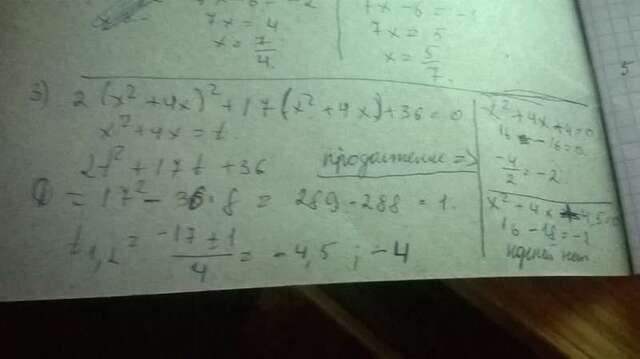 7x = 4
x = 7/4.
7x = 5
x = 5/7.
5
3) 2(x² + 4x)² + 17(x² + 4x) + 36 = 0
x² + 4x = t
2t² + 17t + 36
продолжение =>
= 17² - 36·8 = 289 - 288 = 1.
t₁,₂ = (-17 ± 1)/4 = -4,5 ; -4
x² + 4x + 4 = 0
16 - 16 = 0
-4/2 = -2
16 - 18 = -2